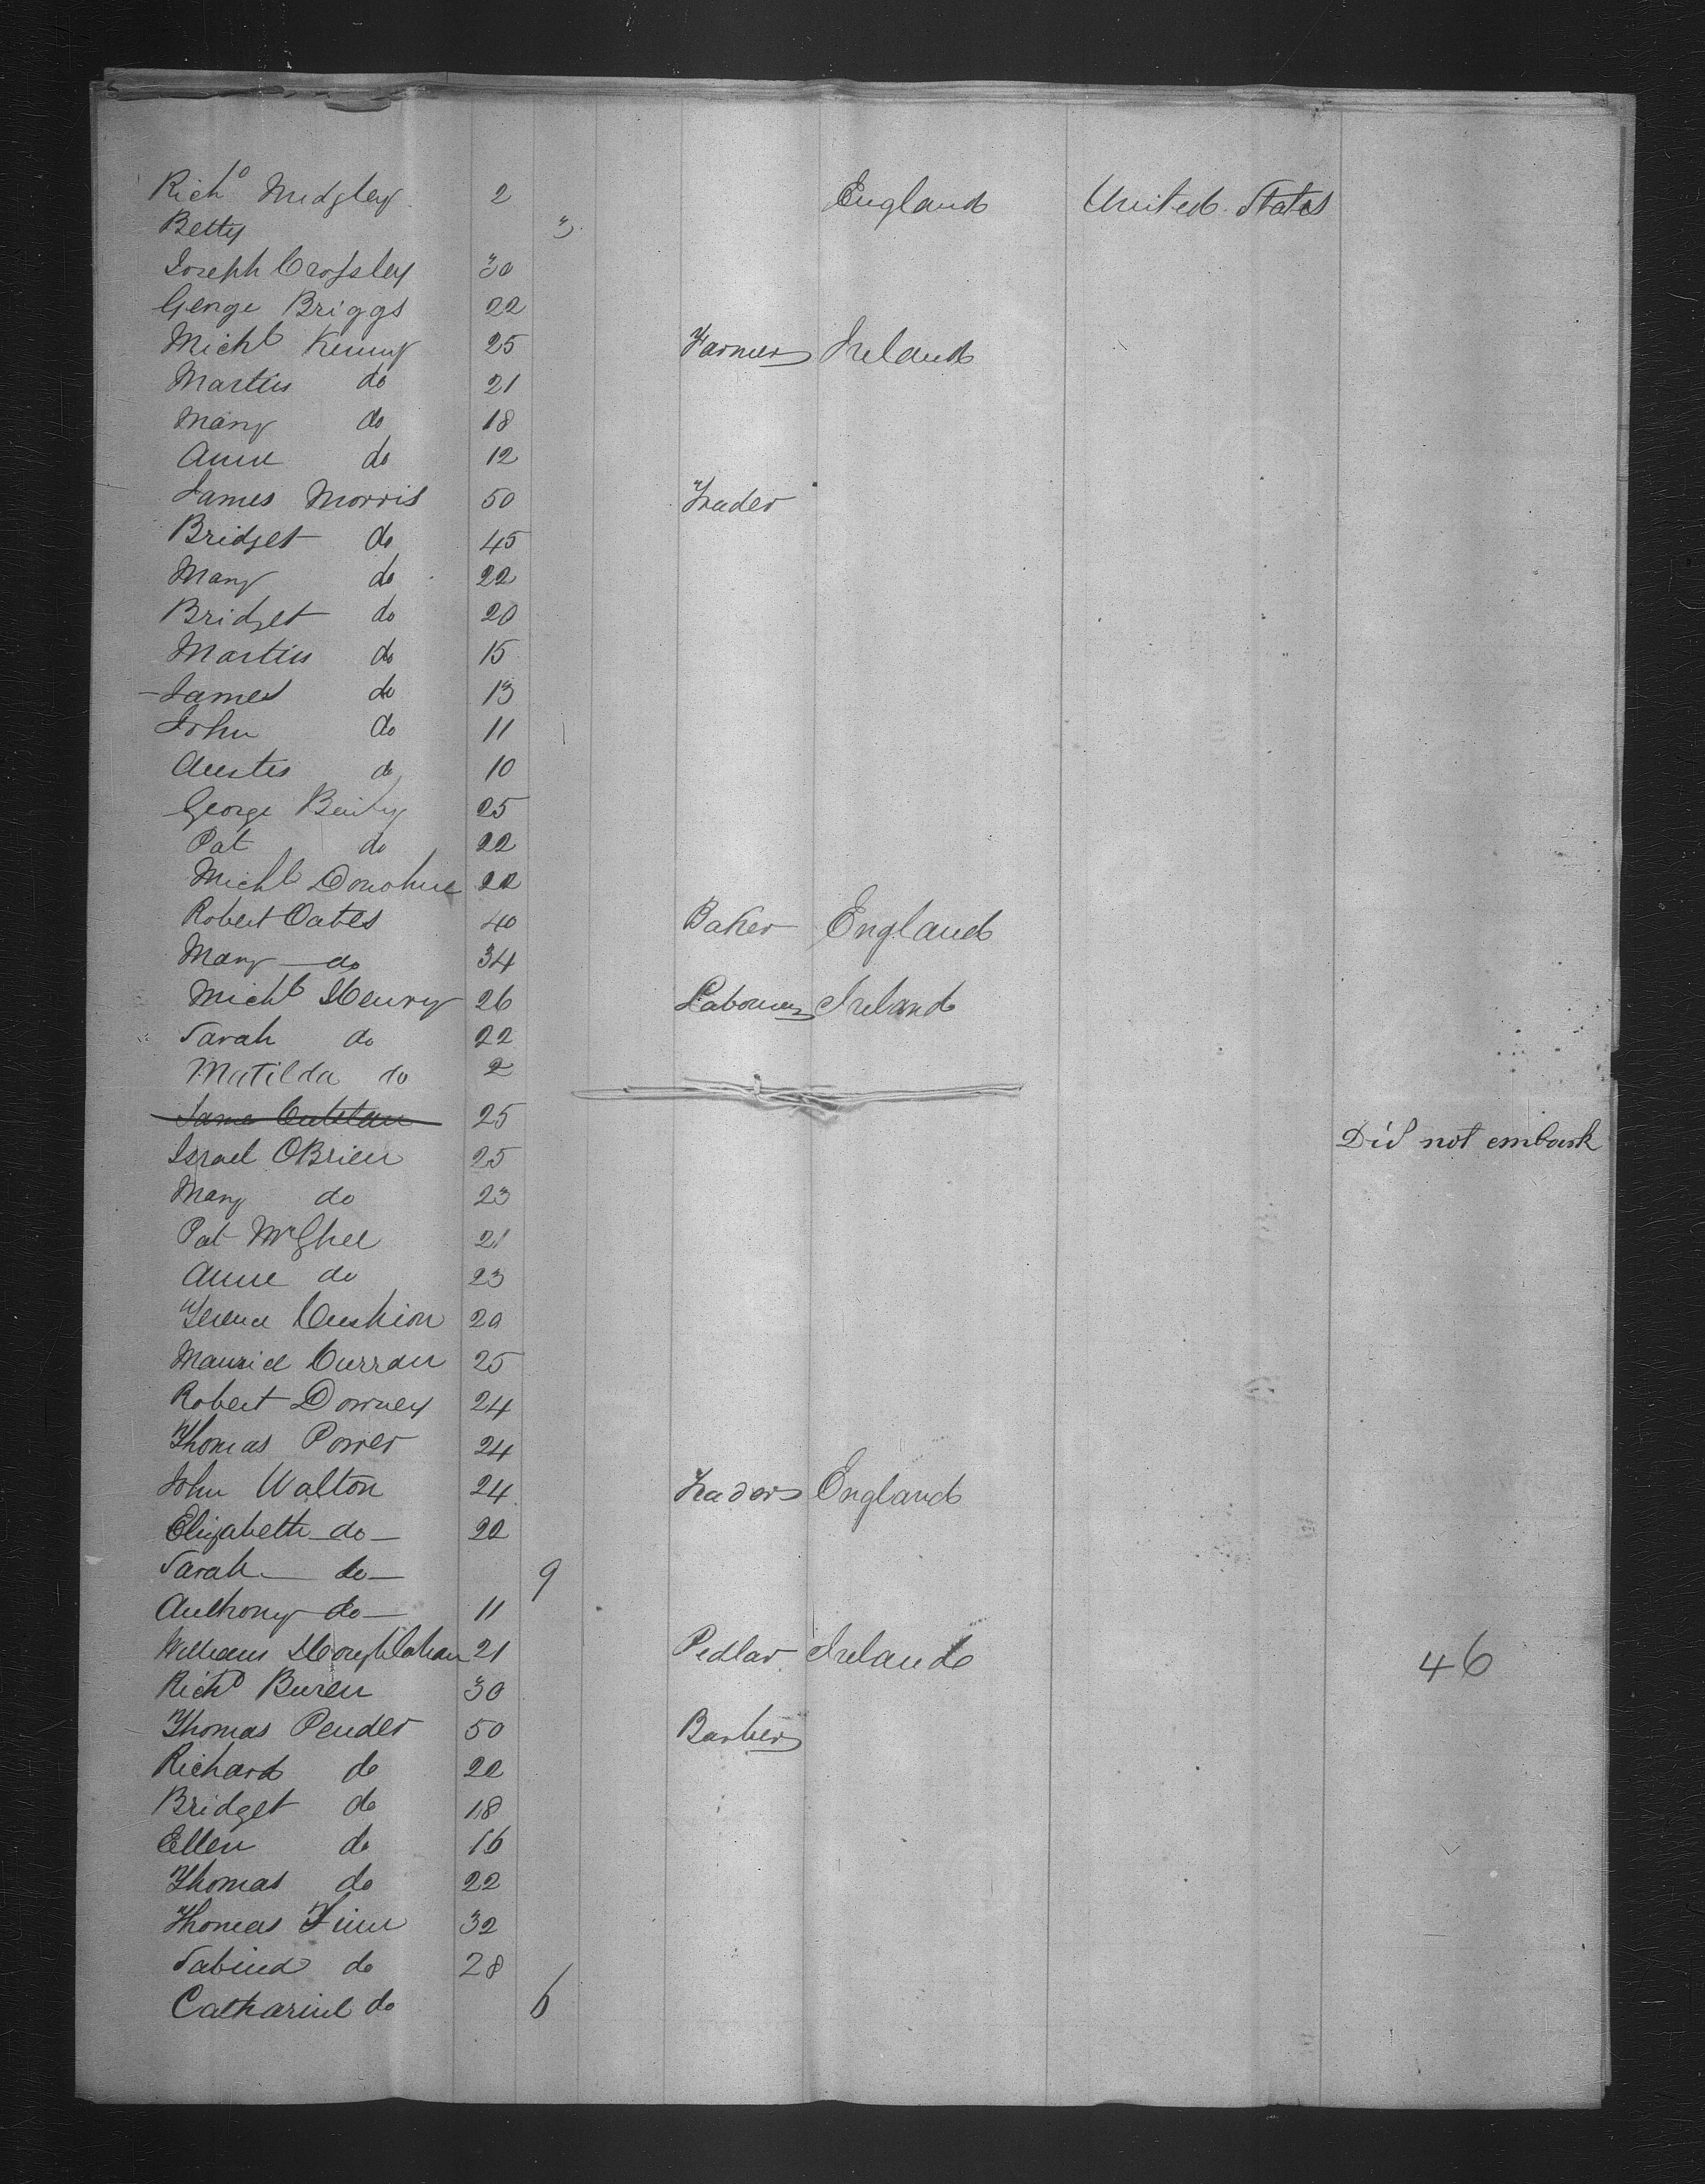 Richd Midgley 2 England United States
Betty 3
Joseph Crossley 30
George Briggs 22
Michl Kenny 25 Farmer Ireland
Martin do 21
Mary do 18
Anne do 12
James Morris 50 Trader
Bridget do 45
Mary do 22
Bridget do 20
Martin do 15
James do 13
John do 11
Austin do 10
George 25
Pat do 22
Michl Donohue 22
Robert Oates 40 Baker England
Mary do 34
Michl Henry 26 Labourer Ireland
Sarah do 22
Matilda do 2
25 Did not embark
Israel OBrien 25
Mary do 23
Pat McGhee 21
Anne do 23
Cushion 20
Maurice Curran 25
Robert Downey 24
Thomas Power 24
John Walton 24 Trader England
Elizabeth do 22
Sarah do 9
Anthony do 11
William 21 Pedlar Ireland 46
Richd Buren 30
Thomas Pender 50 Barber
Richard do 22
Bridget do 18
Ellen do 16
Thomas do 22
Thomas Finn 32
Sabina do 28
Catharine do 6